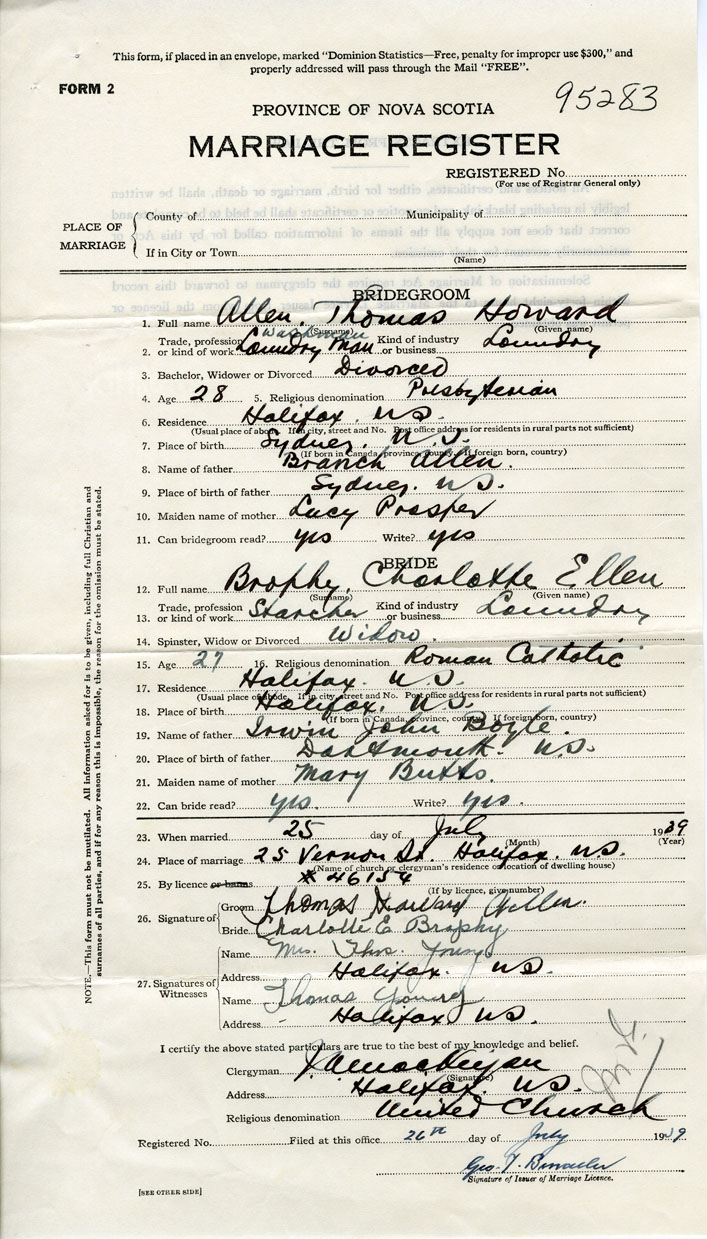 This form, if placed in an envelope, marked "Dominion Statistics—Free, penalty for improper use $300," and
properly addressed will pass through the Mail "FREE".
FORM 2
95283
PROVINCE OF NOVA SCOTIA
MARRIAGE REGISTER
REGISTERED No.
(For use of Registrar General only)
PLACE OF MARRIAGE
County of Municipality of
If in City or Town
(Name)
BRIDEGROOM
1. Full name Allen, Thomas Howard
(Surname) (Given name)
Washman
2. Trade, profession or kind of work Laundry Man Kind of industry or business Laundry
3. Bachelor, Widower or Divorced Divorced
4. Age 28 5. Religious denomination Presbyterian
6. Residence Halifax. N.S.
(Usual place of abode. If in city, street and No. Post office address for residents in rural parts not sufficient)
7. Place of birth Sydney. N.S.
(If born in Canada, province, county. If foreign born, country)
8. Name of father Branch Allen.
9. Place of birth of father Sydney. N.S.
10. Maiden name of mother Lucy Prosper
11. Can bridegroom read? yes Write? yes
BRIDE
12. Full name Brophy, Charlotte Ellen
(Surname) (Given name)
13. Trade, profession or kind of work Starcher Kind of industry or business Laundry
14. Spinster, Widow or Divorced Widow.
15. Age 27 16. Religious denomination Roman Catholic
17. Residence Halifax. N.S.
(Usual place of abode. If in city, street and No. Post office address for residents in rural parts not sufficient)
18. Place of birth Halifax. N.S.
(If born in Canada, province, county. If foreign born, country)
19. Name of father Irwin John Boyle.
20. Place of birth of father Dartmouth. N.S.
21. Maiden name of mother Mary Butts.
22. Can bride read? yes. Write? yes.
23. When married 25 day of July 1939
(Month) (Year)
24. Place of marriage 25 Vernon St. Halifax. N.S.
(Name of church or clergyman's residence or location of dwelling house)
25. By licence or banns # 46154
(If by licence, give number)
26. Signature of
Groom Thomas Howard Allen.
Bride Charlotte E Brophy
27. Signatures of Witnesses
Name Mrs. Thos. Young
Address Halifax. N.S.
Name Thomas Young
Address Halifax N.S.
I certify the above stated particulars are true to the best of my knowledge and belief.
Clergyman
(Signature)
Address Halifax. N.S.
Religious denomination United Church
Registered No. Filed at this office 26th day of July 1939
Geo. T.
Signature of Issuer of Marriage Licence.
[SEE OTHER SIDE]
NOTE.—This form must not be mutilated. All information asked for is to be given, including full Christian and
surnames of all parties, and if for any reason this is impossible, the reason for the omission must be stated.